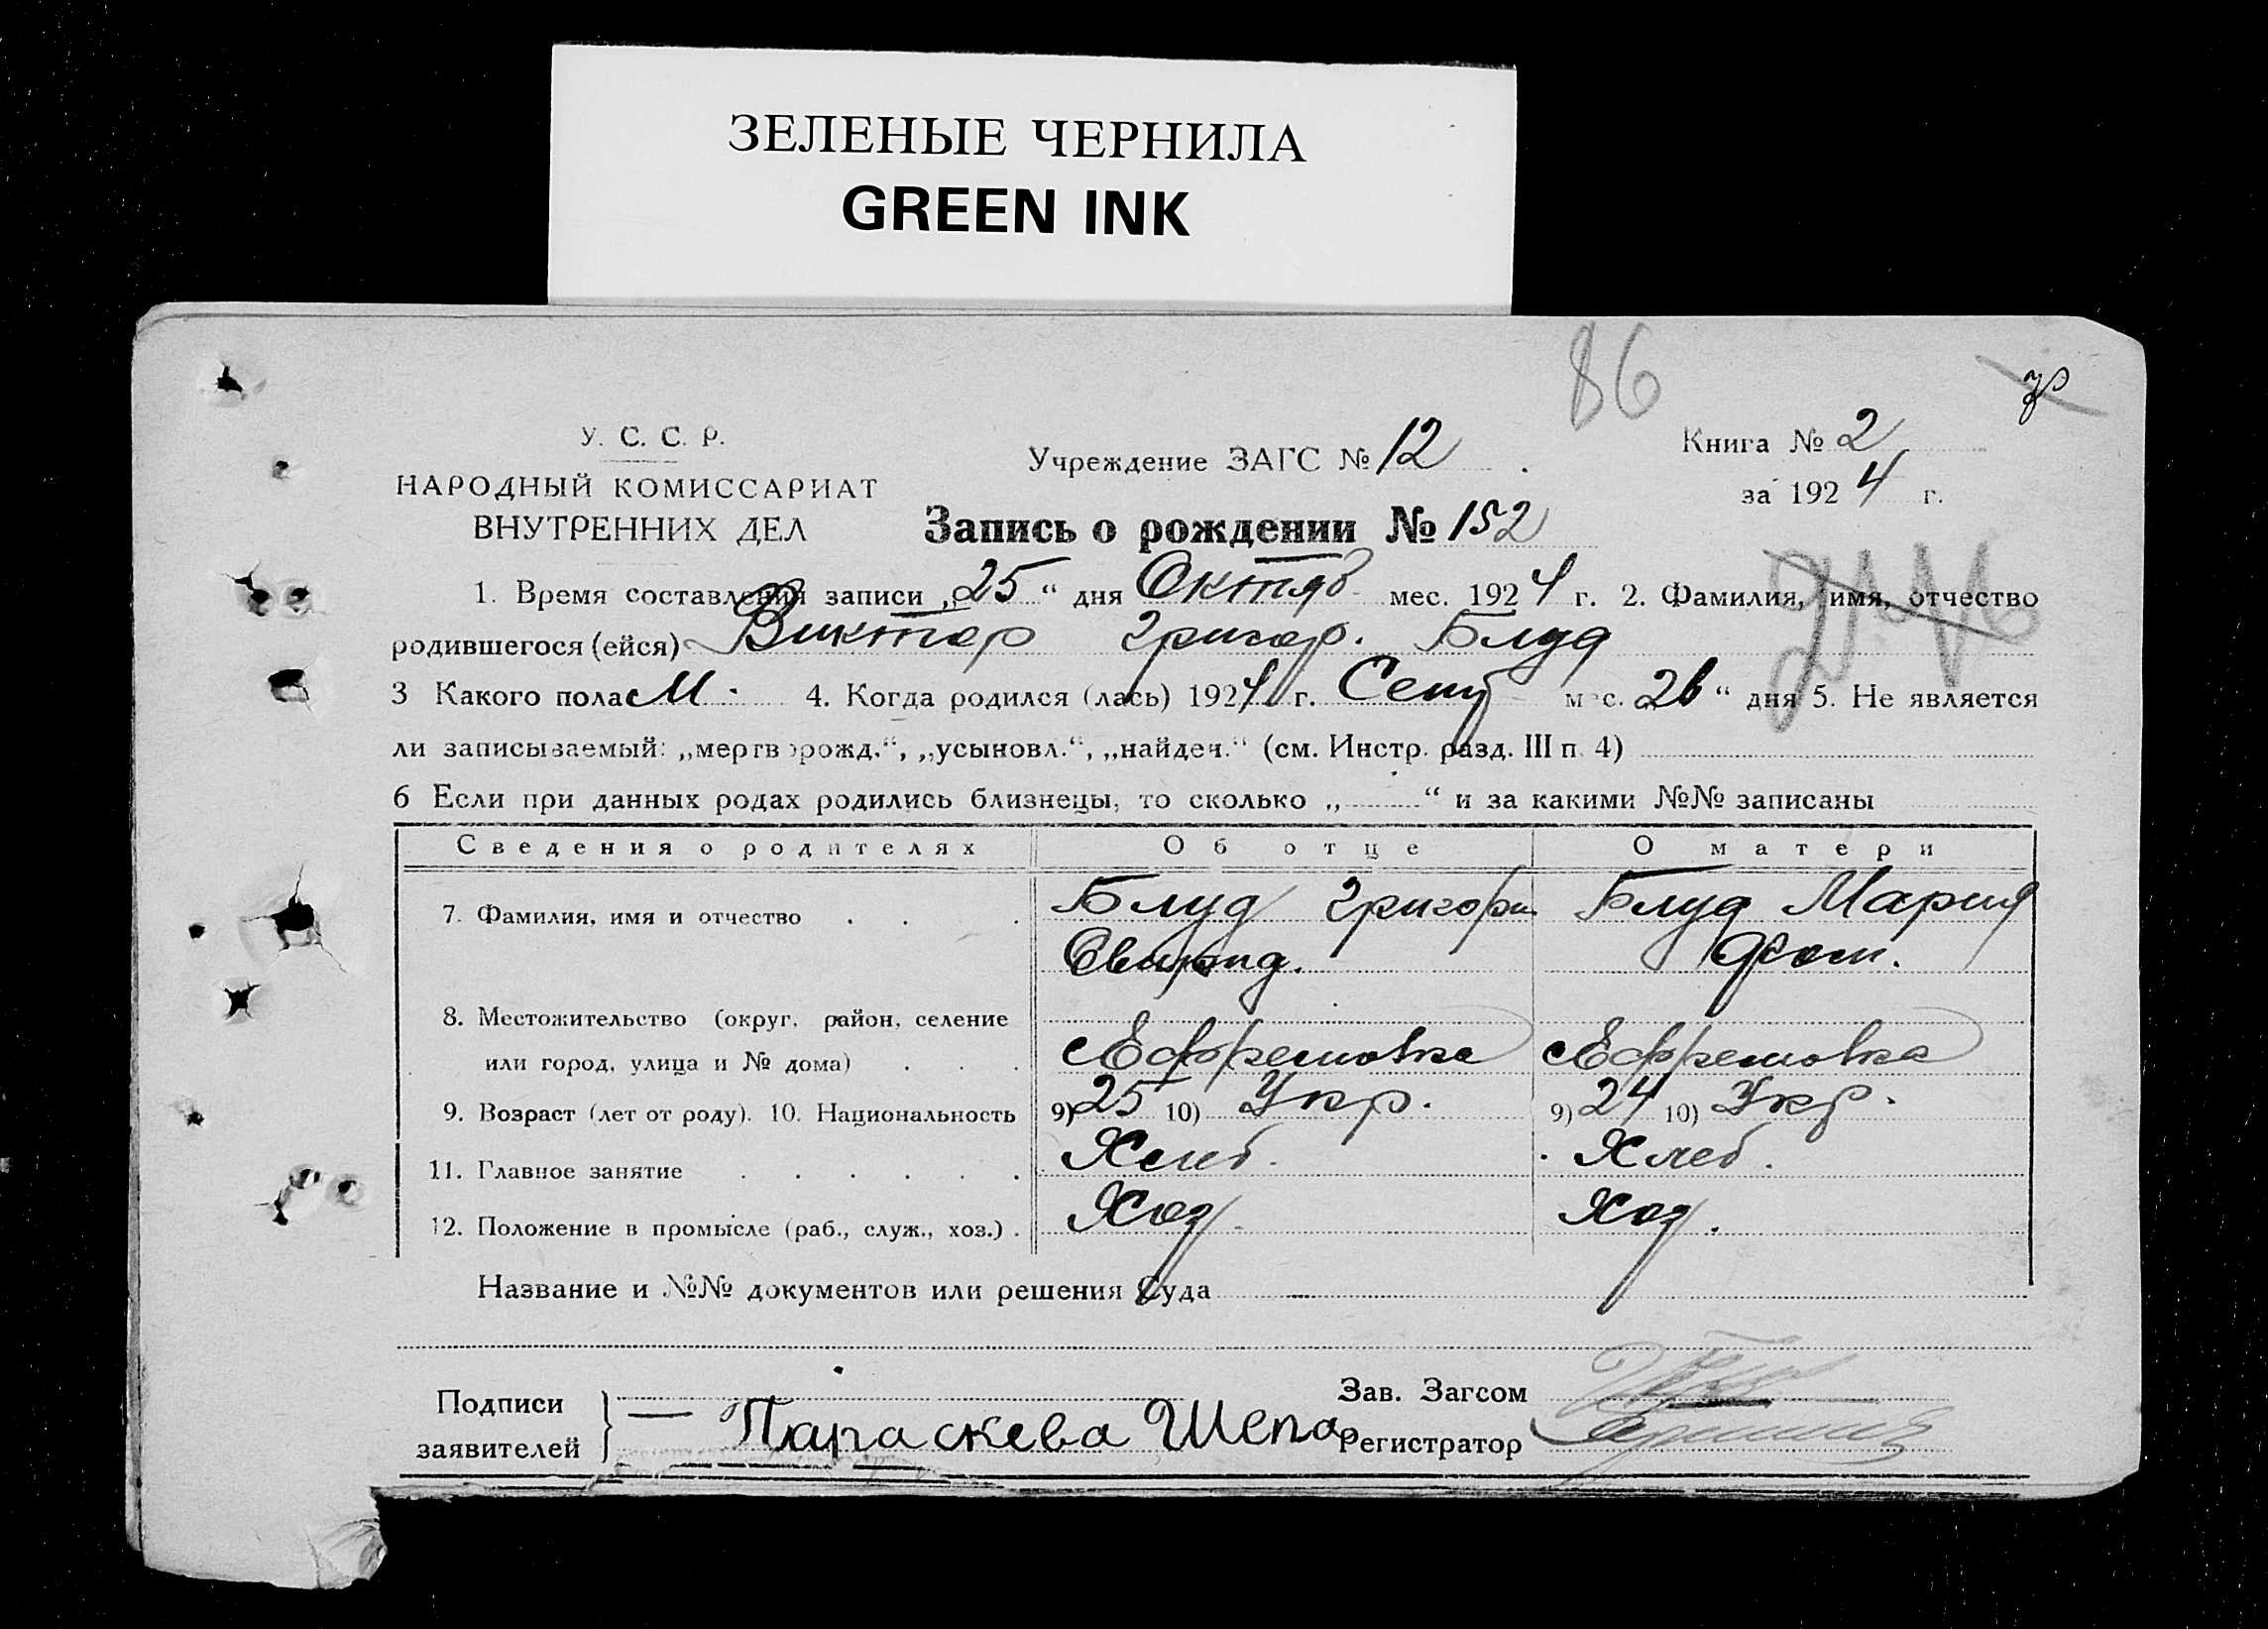 ЗЕЛЕНЫЕ ЧЕРНИЛА
GREEN INK
86
У. С. С. Р.
НАРОДНЫЙ КОМИССАРИАТ
ВНУТРЕННИХ ДЕЛ
Учреждение ЗАГС № 12
Книга № 2
за 1924 г.
Запись о рождении № 152
1. Время составления записи „25“ дня Октяб мес. 1924 г. 2. Фамилия, имя, отчество
родившегося (ейся) Виктор Григор. Блуд
3 Какого пола М. 4. Когда родился (лась) 1924 г. Сент мес. 26 “ дня 5. Не является
ли записываемый: „мертворожд.“, „усыновл.“, „найден.“ (см. Инстр. разд. III п. 4)
6 Если при данных родах родились близнецы, то сколько „ “ и за какими №№ записаны
Сведения о родителях Об отце О матери
7. Фамилия, имя и отчество Блуд Григори Блуд Мария
8. Местожительство (округ, район, селение
или город, улица и № дома) Ефремовка Ефремовка
9. Возраст (лет от роду). 10. Национальность 9) 25 10) Укр. 9) 24 10) Укр.
11. Главное занятие Хлеб. Хлеб.
12. Положение в промысле (раб., служ., хоз.) Хоз. Хоз.
Название и №№ документов или решения Суда —
Подписи
заявителей
Параскева Шепа
Зав. Загсом
Регистратор